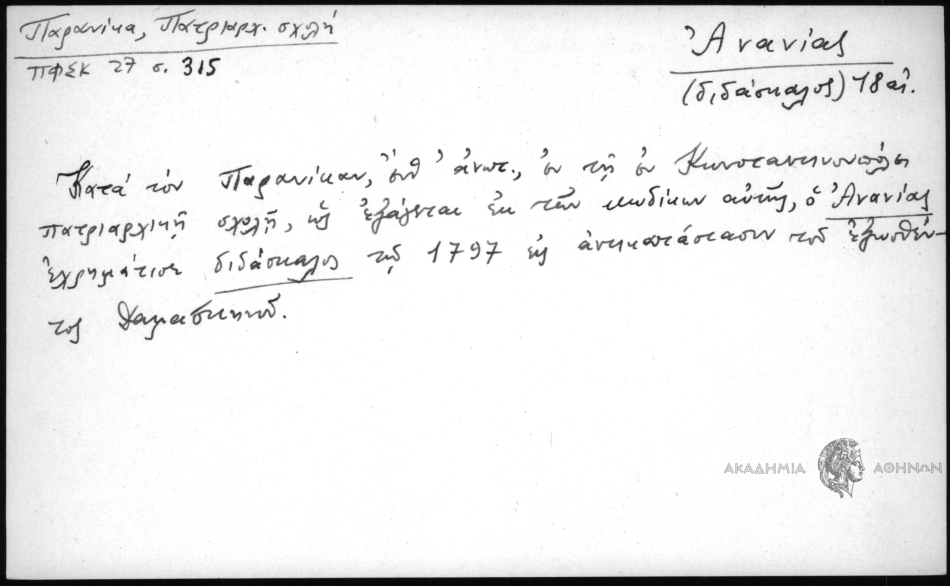 Παρανίκα, Πατριαρχ. σχολή
ΠΦΣΚ 27 σ. 315
Ἀνανίας
(διδάσκαλος) 18 αἰ.
Κατά τόν Παρανίκαν, ἔνθ' ἀνωτ., ἐν τῇ ἐν Κωνσταντινουπόλει
πατριαρχικῇ σχολῇ, ὡς ἐξάγεται ἐκ τῶν κωδίκων αὐτῆς, ὁ Ἀνανίας
ἐχρημάτισε διδάσκαλος τῷ 1797 εἰς ἀντικατάστασιν τοῦ ἐξωσθέν-
τος Δαμασκηνοῦ.
ΑΚΑΔΗΜΙΑ ΑΘΗΝΩΝ